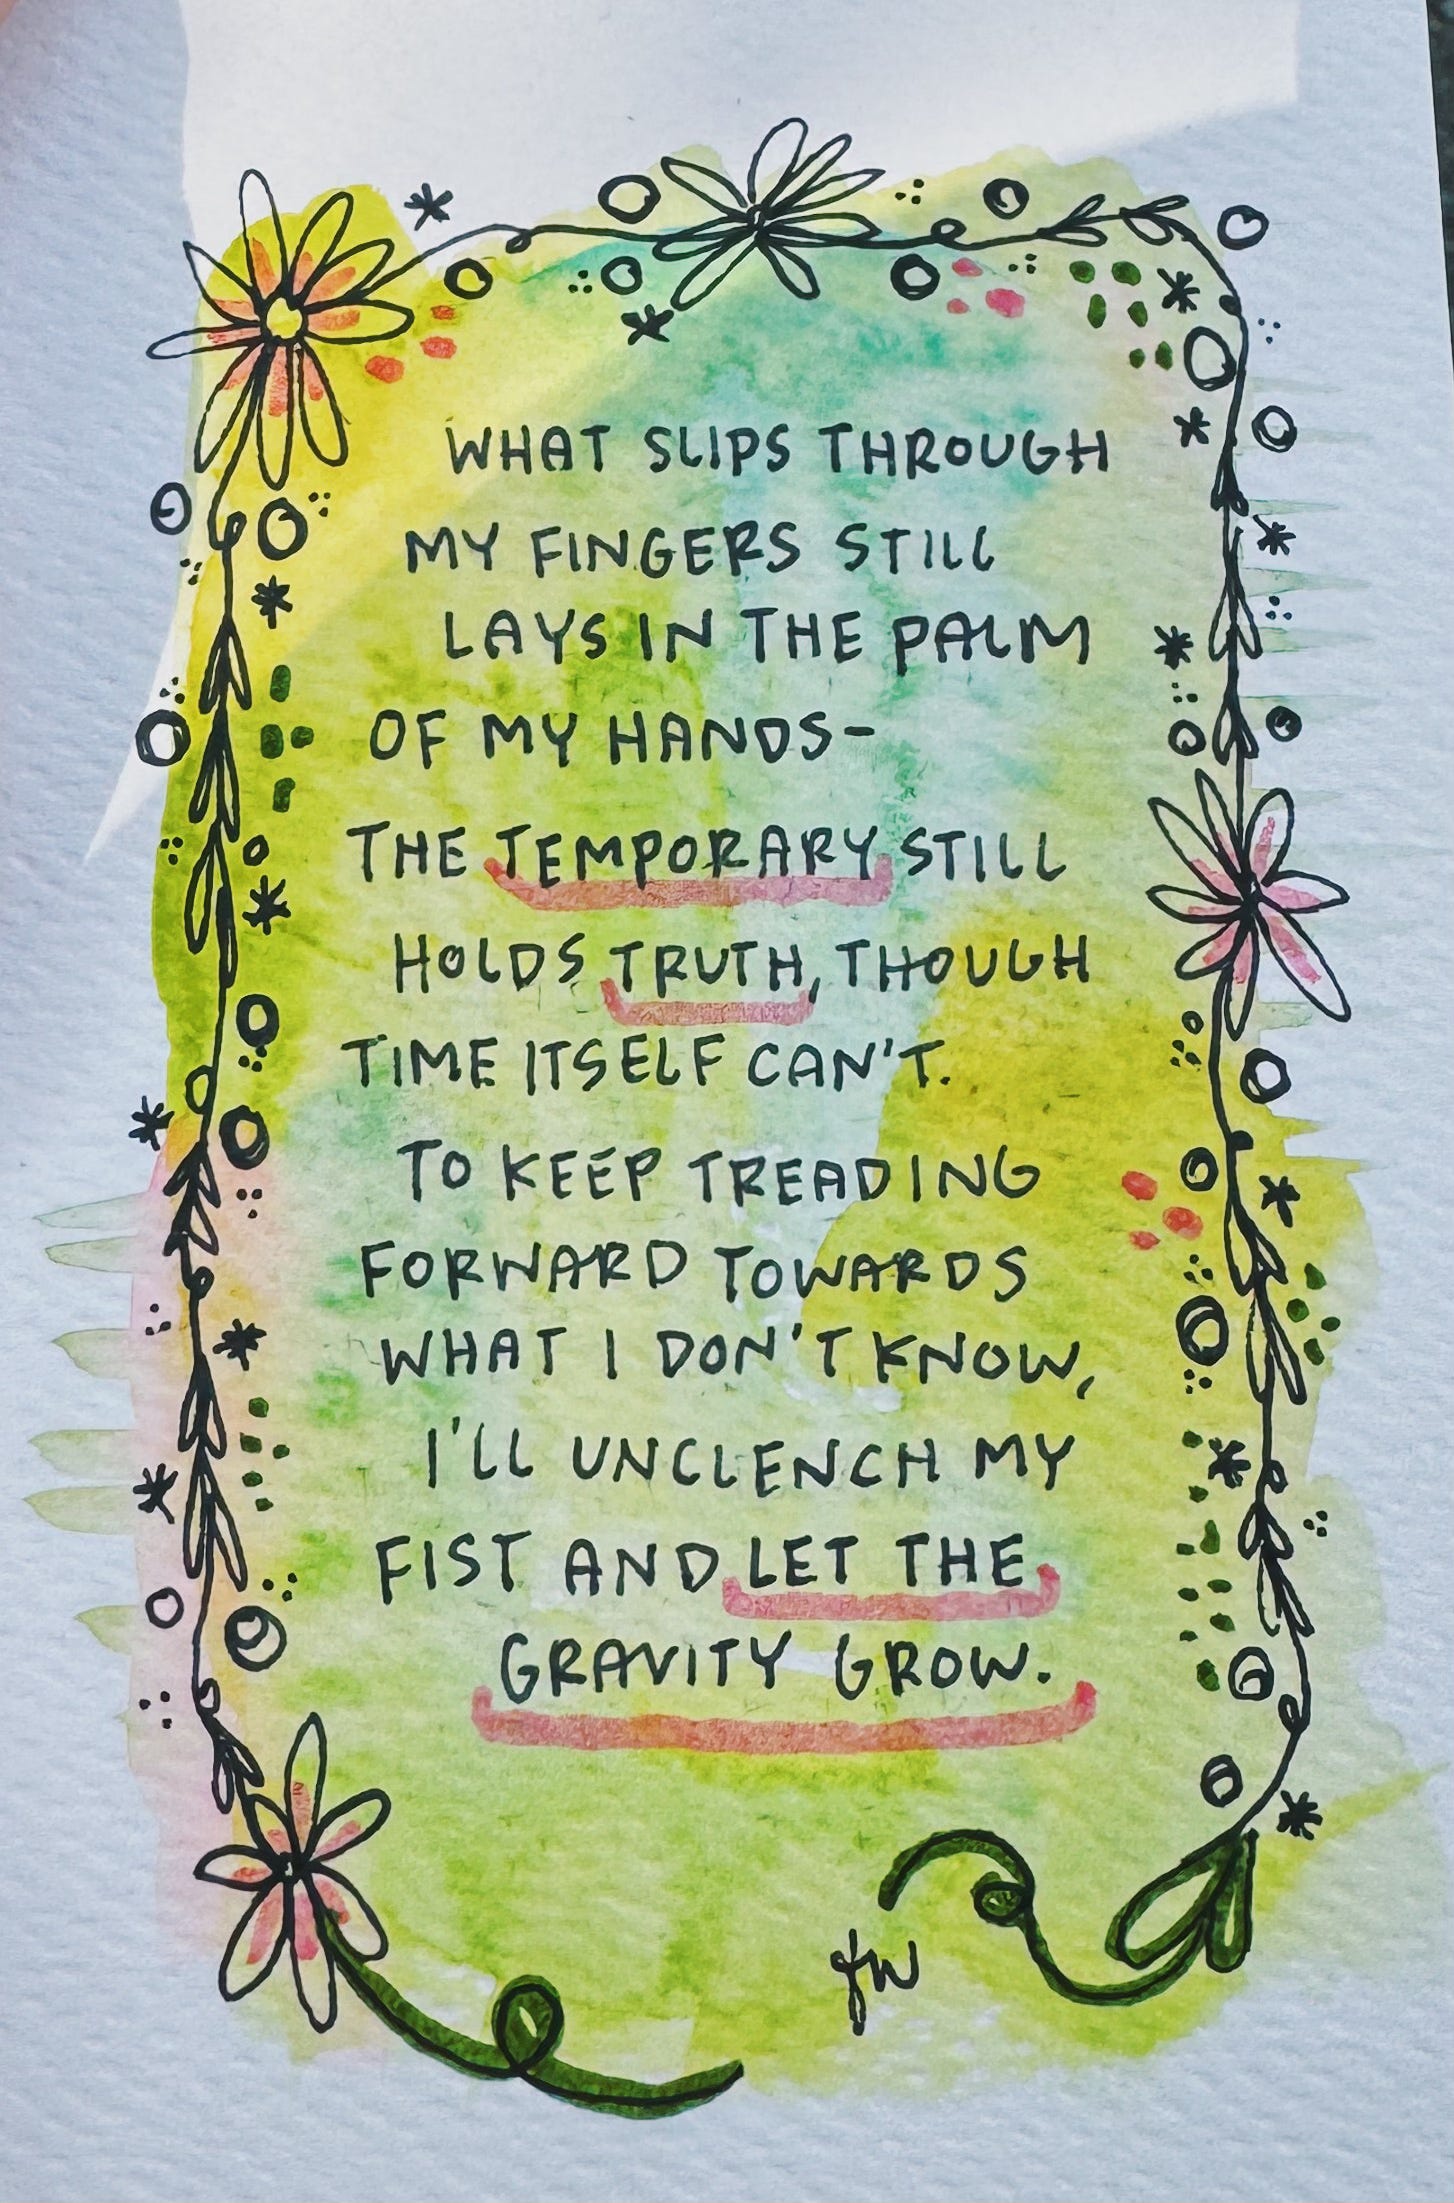 WHAT SLIPS THROUGH
MY FINGERS STILL
LAYS IN THE PALM
OF MY HANDS-
THE TEMPORARY STILL
HOLDS TRUTH, THOUGH
TIME ITSELF CAN'T.
TO KEEP TREADING
FORWARD TOWARDS
WHAT I DON'T KNOW,
I'LL UNCLENCH MY
FIST AND LET THE
GRAVITY GROW.